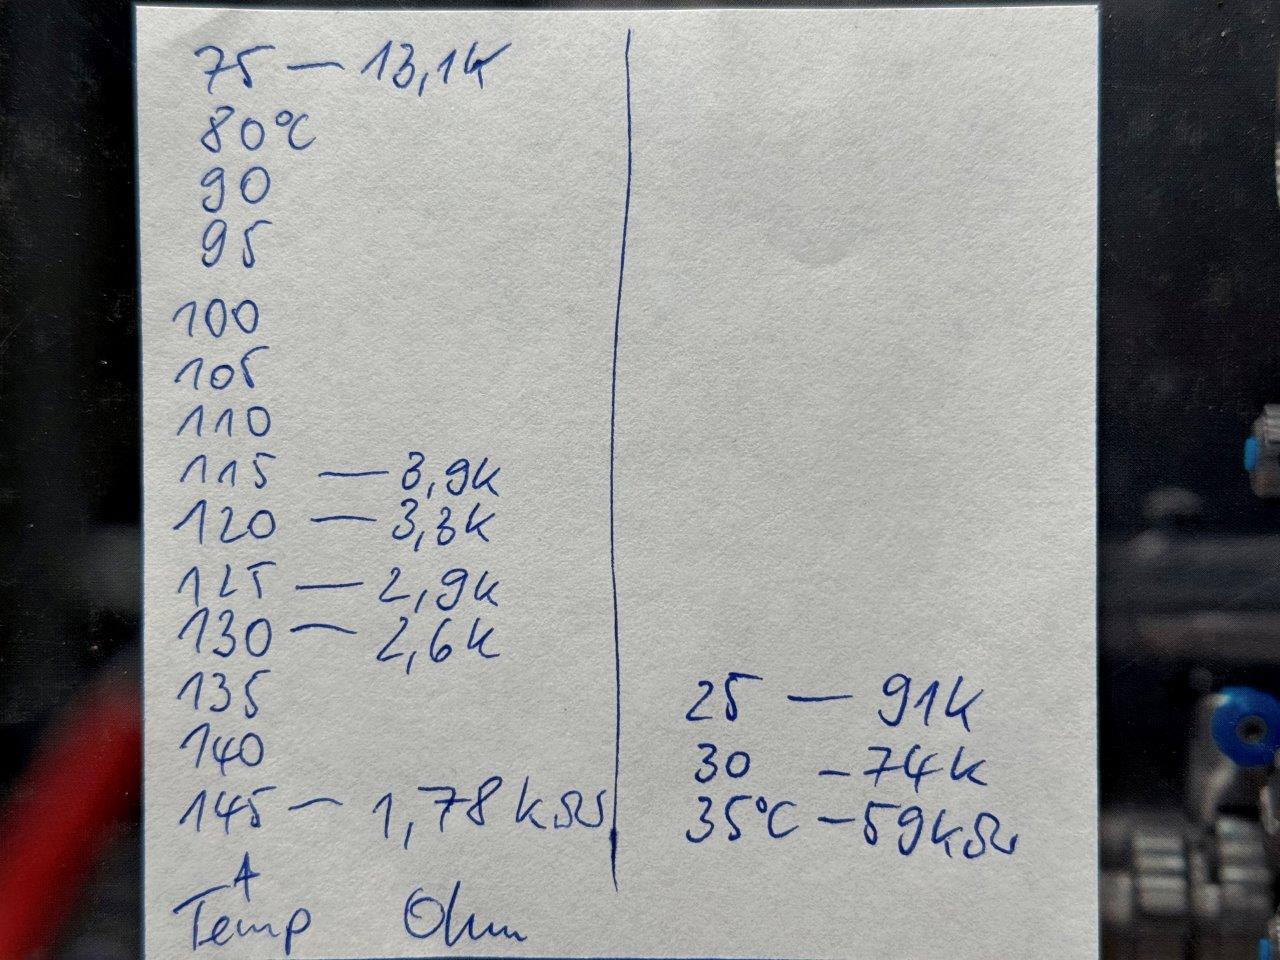 75 — 13,1k
80°C
90
95
100
105
110
115 — 3,9k
120 — 3,3k
125 — 2,9k
130 — 2,6k
135
140
145 — 1,78 kΩ
Temp Ohm
25 — 91k
30 - 74k
35°C - 59kΩ